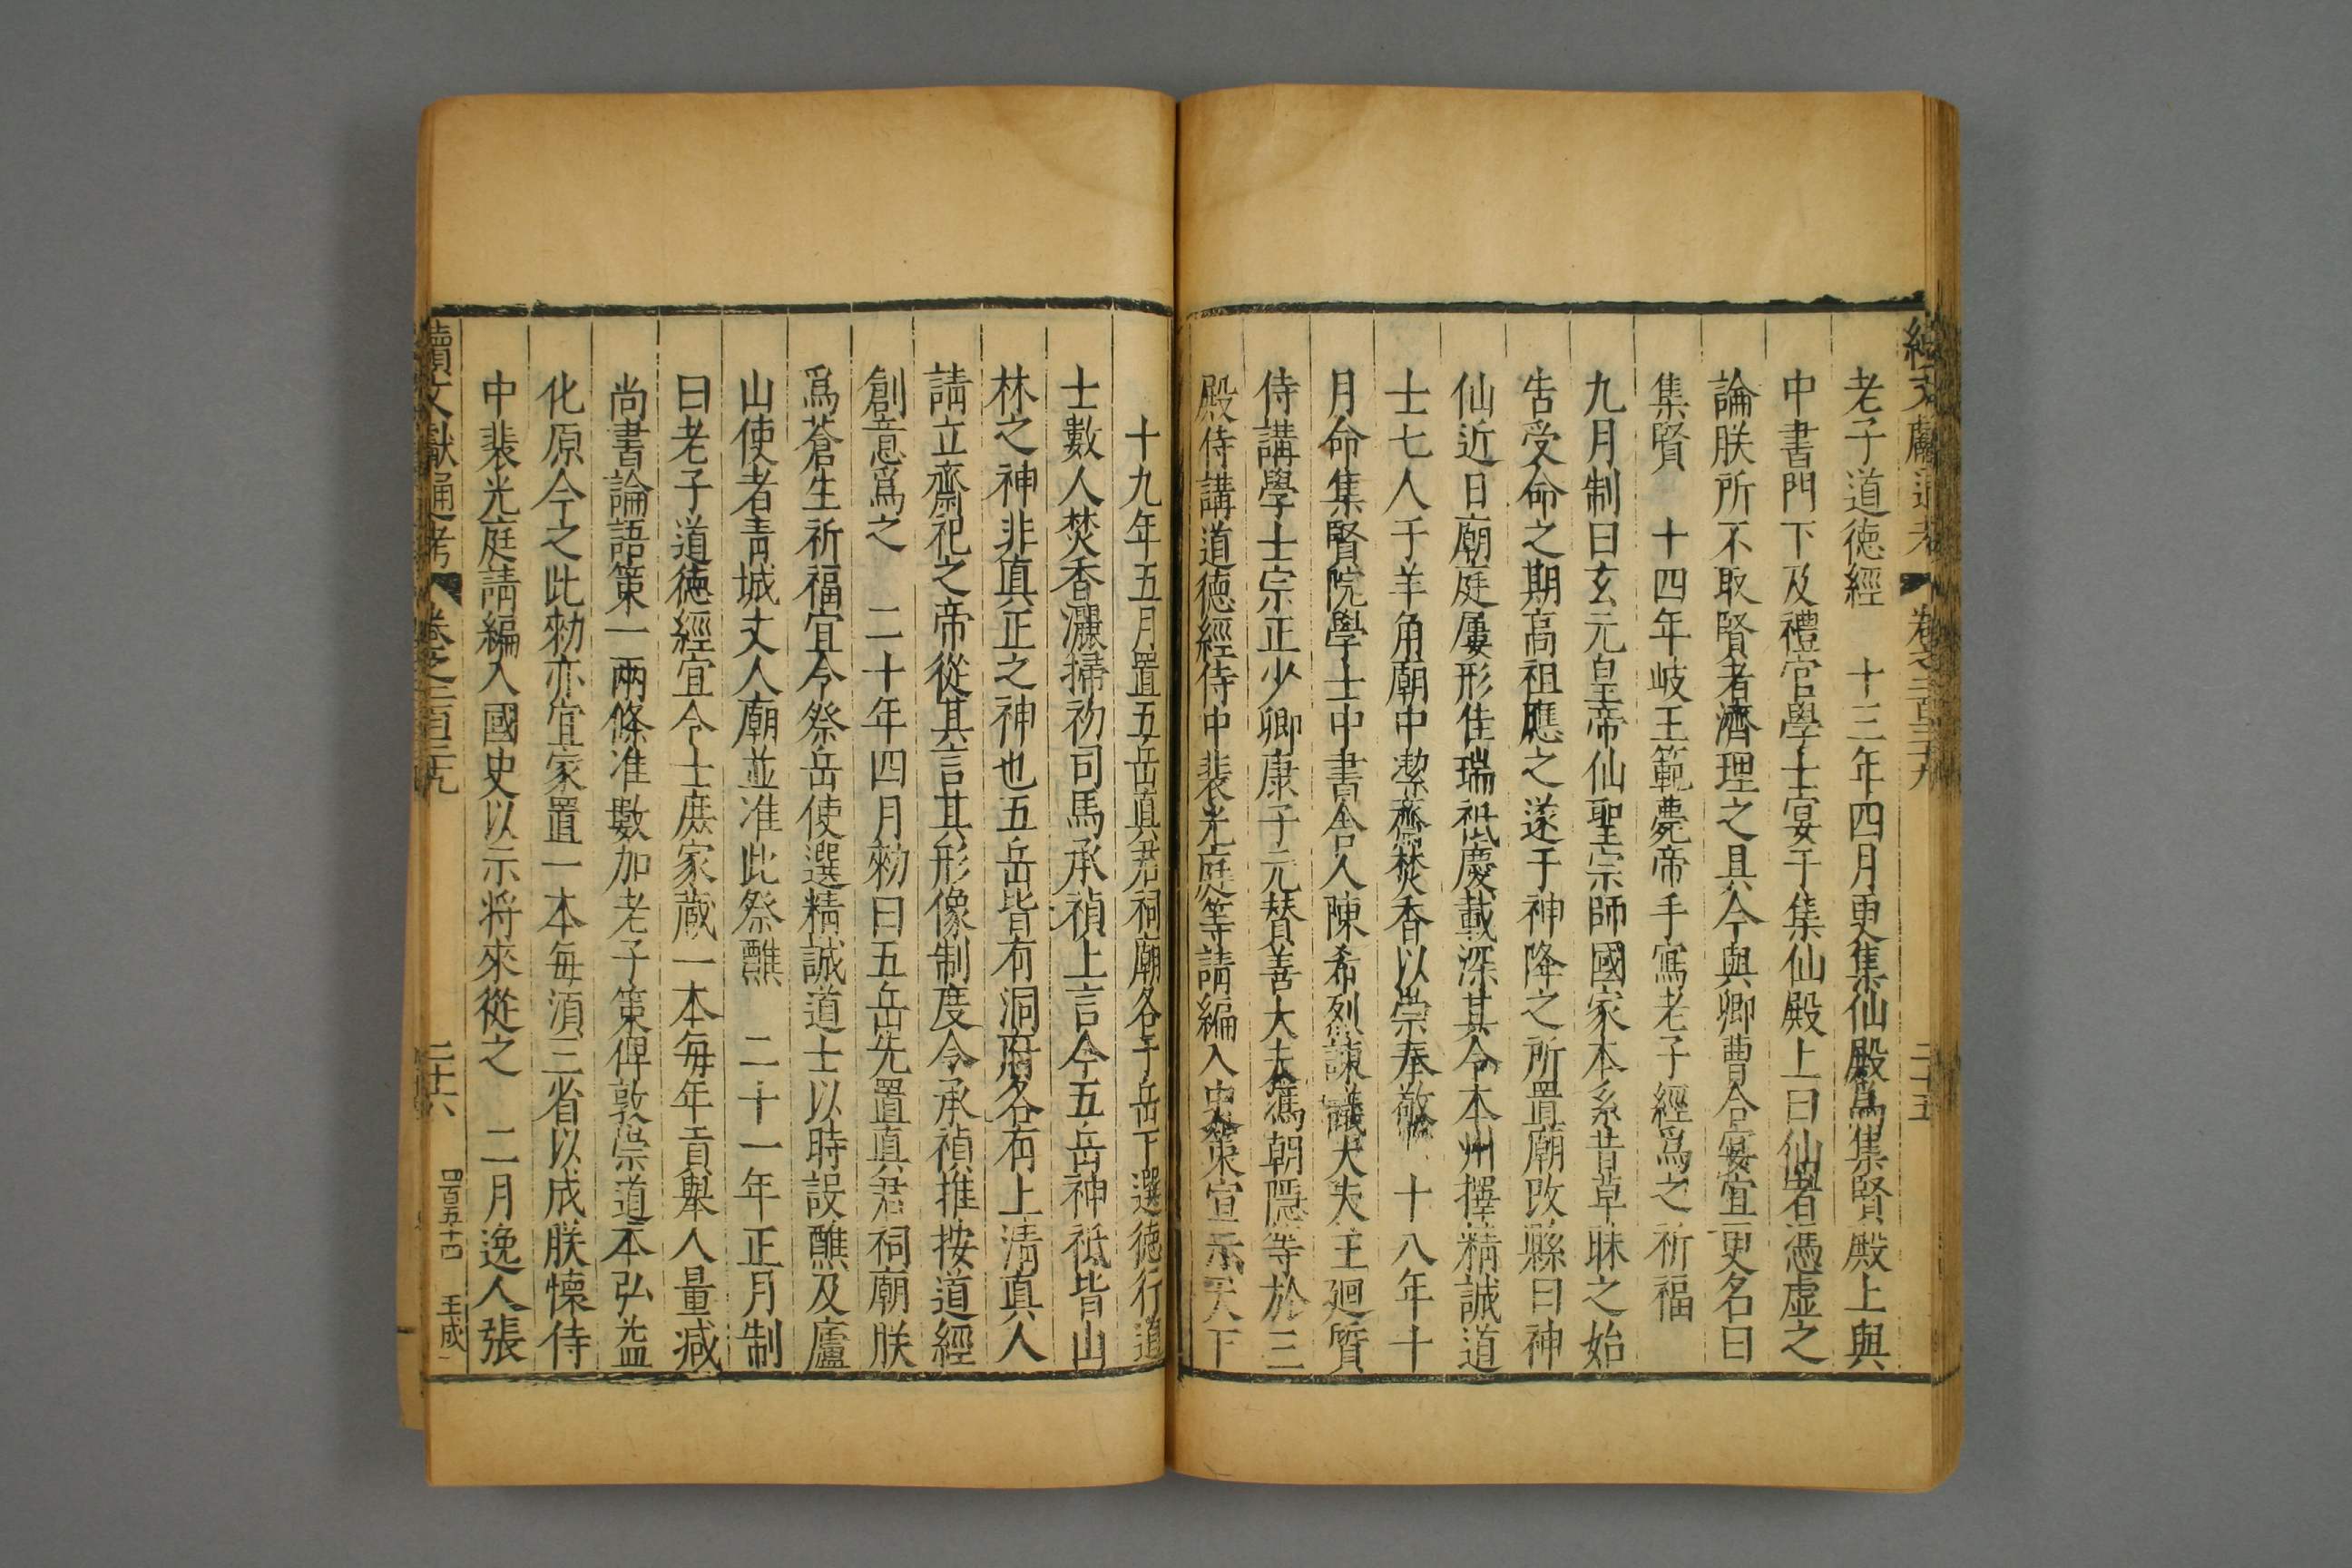 續文獻通考 卷之二百三十九 二十五
老子道德經 十三年四月更集仙殿爲集賢殿上與
中書門下及禮官學士宴于集仙殿上曰仙者憑虛之
論朕所不取賢者濟理之具今與卿曹合宴宜更名曰
集賢 十四年岐王範薨帝手寫老子經爲之祈福
九月制曰玄元皇帝仙聖宗師國家本系昔草昧之始
告受命之期高祖應之遂于神降之所置廟改縣曰神
仙近日廟庭屢形佳瑞祗慶載深其令本州擇精誠道
士七人于羊角廟中潔齋焚香以崇奉敬 十八年十
月命集賢院學士中書舍人陳希烈諫議大夫王迴質
侍講學士宗正少卿康子元賛善大夫馮朝隱等於三
殿侍講道德經侍中裴光庭等請編入史策宣示天下
十九年五月置五岳真君祠廟各于岳下選德行道
士數人焚香灑掃初司馬承禎上言今五岳神祗皆山
林之神非真正之神也五岳皆有洞府各有上清真人
請立齋祀之帝從其言其形像制度令承禎推按道經
創意爲之 二十年四月勑曰五岳先置真君祠廟朕
爲蒼生祈福宜令祭岳使選精誠道士以時設醮及廬
山使者青城丈人廟並准此祭醮 二十一年正月制
曰老子道德經宜令士庶家藏一本每年貢舉人量减
尚書論語策一兩條准數加老子策俾敦崇道本弘益
化原今之此勑亦宜家置一本每湏三省以成朕懐侍
中裴光庭請編入國史以示将來從之 二月逸人張
續文獻通考 卷之二百三十九 二十六 四百五十四 王成